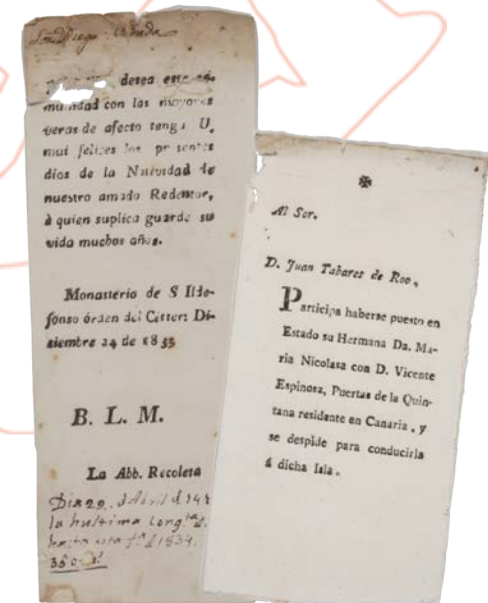 Don Diego
desea esta co-
munidad con las mayores
veras de afecto tenga U.
mui felices los presentes
dias de la Natividad de
nuestro amado Redentor,
à quien suplica guarde su
vida muchos años.
Monasterio de S Ilde-
fonso órden del Cister: Di-
siembre 24 de 1833
B. L. M.
La Abb. Recoleta
Dia 29. d Abril d
la
1834.
Al Sor.
D. Juan Tabares de Roo,
Participa haberse puesto en
Estado su Hermana Da. Ma-
ria Nicolasa con D. Vicente
Espinosa, Puertas de la Quin-
tana residente en Canaria, y
se despide para conducirla
á dicha Isla.